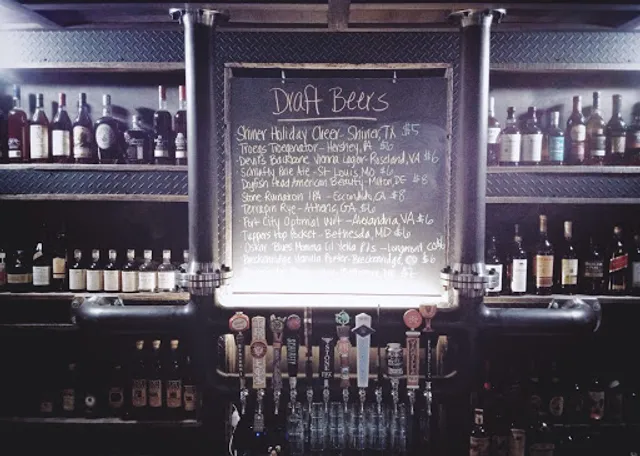 Draft Beers
Shiner Holiday Cheer - Shiner, TX $5
Troegs Troegenator - Hershey, PA $6
Devils Backbone Vienna Lager - Roseland, VA $6
Schlafly Pale Ale - St. Louis, MO $6
Dogfish Head American Beauty - Milton, DE $8
Stone Ruination IPA - Escondido, CA $8
Terrapin Rye - Athens, GA $6
Port City Optimal Wit - Alexandria, VA $6
Hop Pocket - Bethesda, MD $6
Oskar Blues Mama Lil Yella Pils - Longmont
Breckenridge Vanilla Porter - Breckenridge
STONE